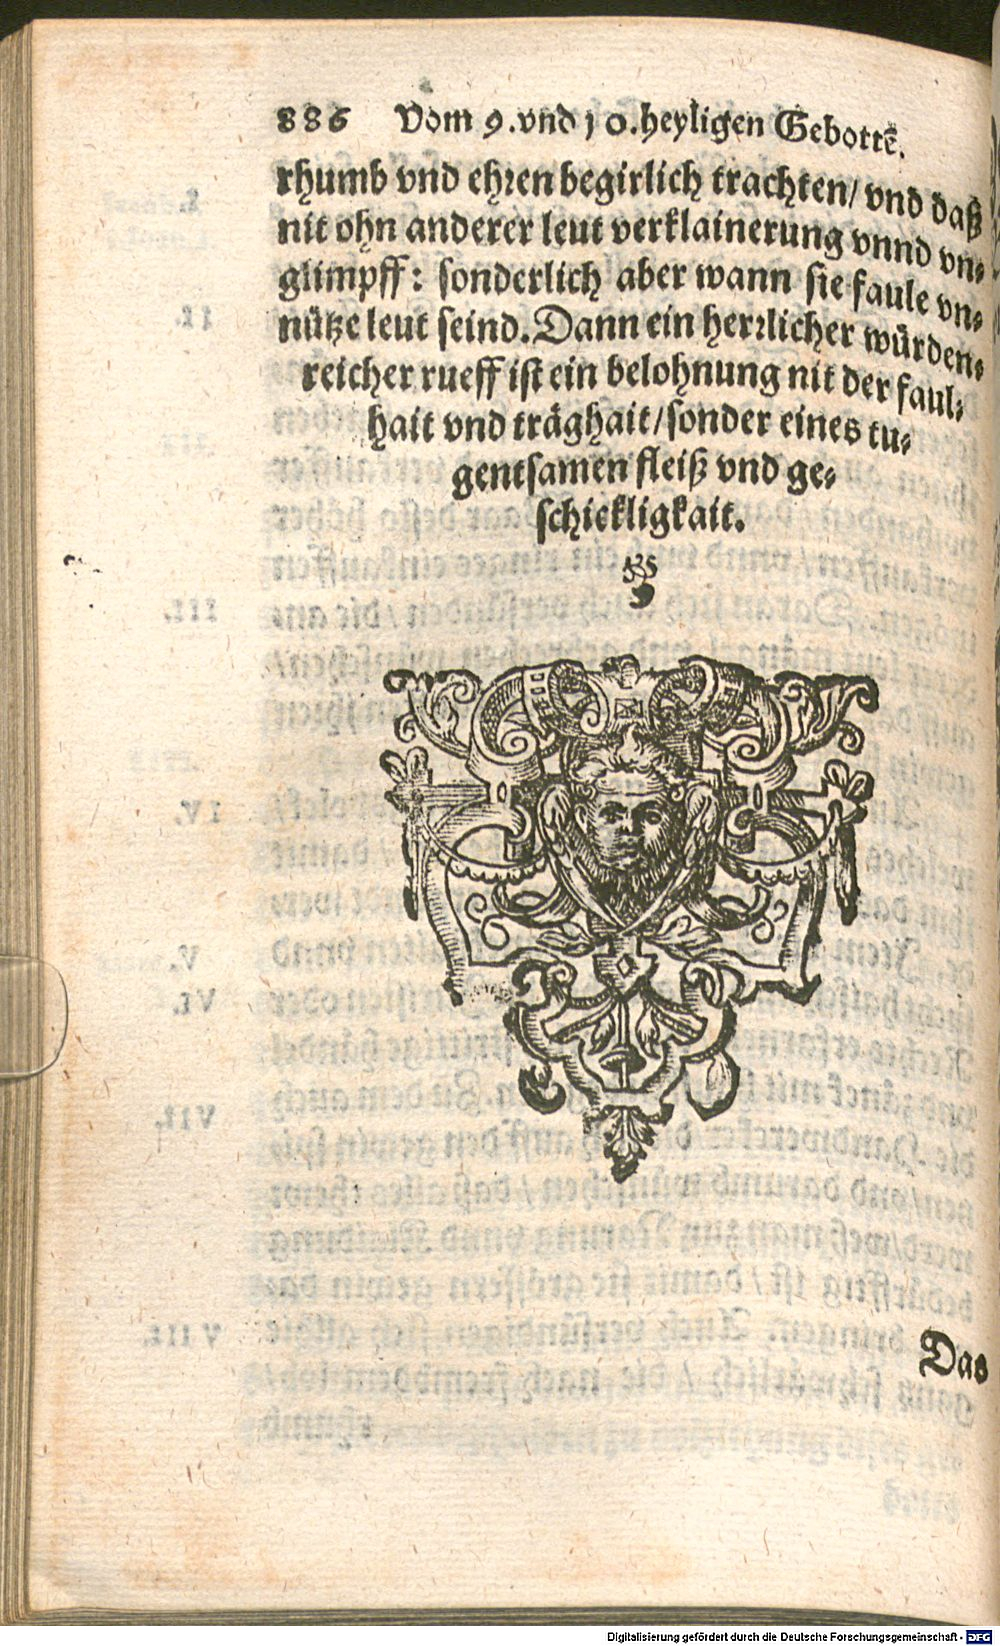 886 Vom 9. vnd 10. heyligen Gebottẽ.
rhumb vnd ehren begirlich trachten/ vnd daß
nit ohn anderer leut verklainerung vnnd vn⸗
glimpff: sonderlich aber wann sie faule vn⸗
nütze leut seind. Dann ein herrlicher würden⸗
reicher rueff ist ein belohnung nit der faul⸗
hait vnd träghait/ sonder eines tu⸗
gentsamen fleiß vnd ge⸗
schickligkait.
Das
Digitalisierung gefördert durch die Deutsche Forschungsgemeinschaft - DFG